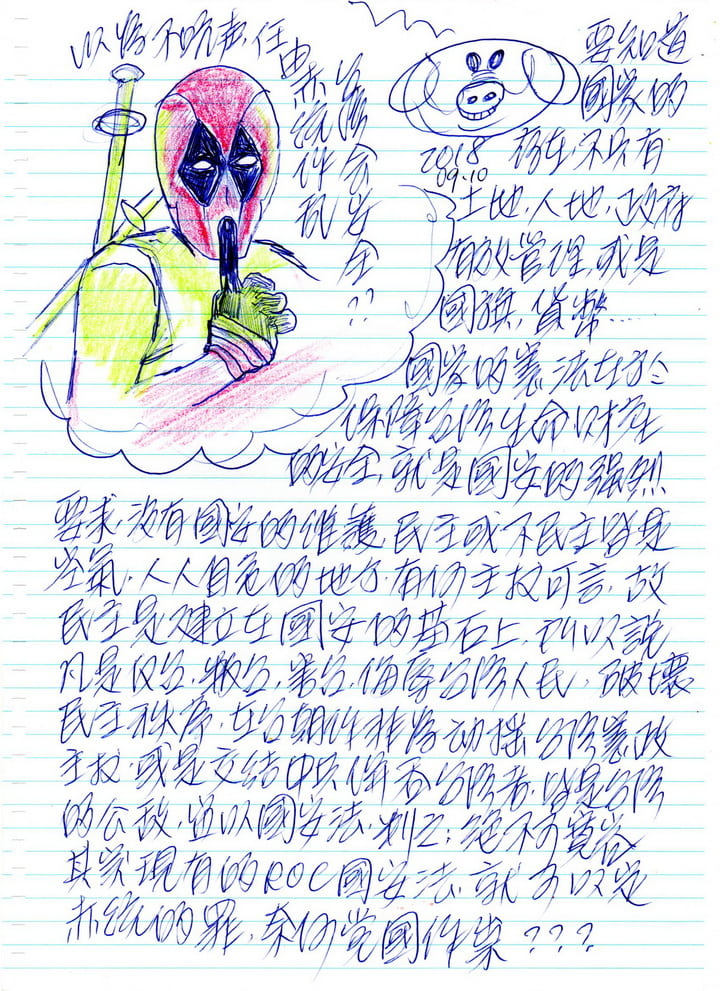 要知道
國家的
2018
09.10
存在,不只有
土地,人地,政府
有效管理,或是
國旗,貨幣……
國家的憲法在於
保障台灣生命財產
的安全,就是國安的強烈
要求,沒有國安的維護,民主或不民主皆是
空氣,人人自危的地方,有何主权可言,故
民主是建立在國安的基石上,所以說
凡是反台,叛台,害台,侮辱台灣人民,破壞
民主秩序,在台
主权,或是交结中共併吞台灣者,皆是台灣
的公敌,並以國安法判之;絕不可寬容
其实現有的ROC國安法,就可以定
赤統的罪,奈何党國作祟???
台灣会安全??